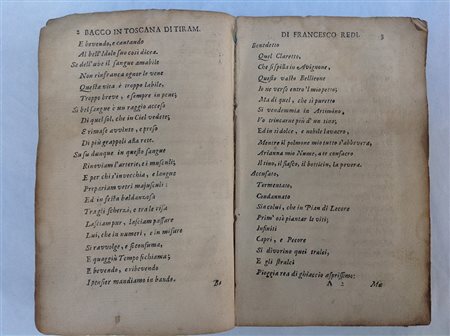 2 BACCO IN TOSCANA DI TIRAM.
E bevendo, e cantando
Al bell'Idolo suo così dicea.
Se dell'uve il sangue amabile
Non rinfranca ognor le vene
Questa vita è troppo labile,
Troppo breve, e sempre in pene;
Sì bel sangue è un raggio acceso
Di quel sol, che in Ciel vedete;
E rimase avvinto, e preso
Di più grappoli alla rete.
Su su dunque in questo sangue
Rinoviam l'arterie, e i muscoli;
E per chi s'invecchia, e langue
Prepariam vetri majuscoli:
Ed in festa baldanzosa
Tra gli scherzi, e tra le risa
Lasciam pur, lasciam passare
Lui, che in numeri, e in misure
Si ravvolge, e si consuma,
E quaggiù Tempo si chiama;
E bevendo, e ribevendo
I pensier mandiamo in bando.
Be
DI FRANCESCO REDI. 3
Benedetto
Quel Claretto,
Che si spilla in Avignone,
Questo vasto Bellicone
Io ne verso entro 'l mio petto;
Ma di quel, che sì puretto
Si vendemmia in Artimino,
Vo trincarne più d'un tino;
Ed in sì dolce, e nobile lavacro,
Mentre il polmone mio tutto s'abbevera,
Arianna mio Nume, a te consacro
Il tino, il fiasco, il botticin, la pevera.
Accusato,
Tormentato,
Condannato
Sia colui, che in Pian di Lecore
Prim' osò piantar le viti;
Infiniti
Capri, e Pecore
Si divorino quei tralci,
E gli stralci
Pioggia rea di ghiaccio asprissimo:
A 2 Ma